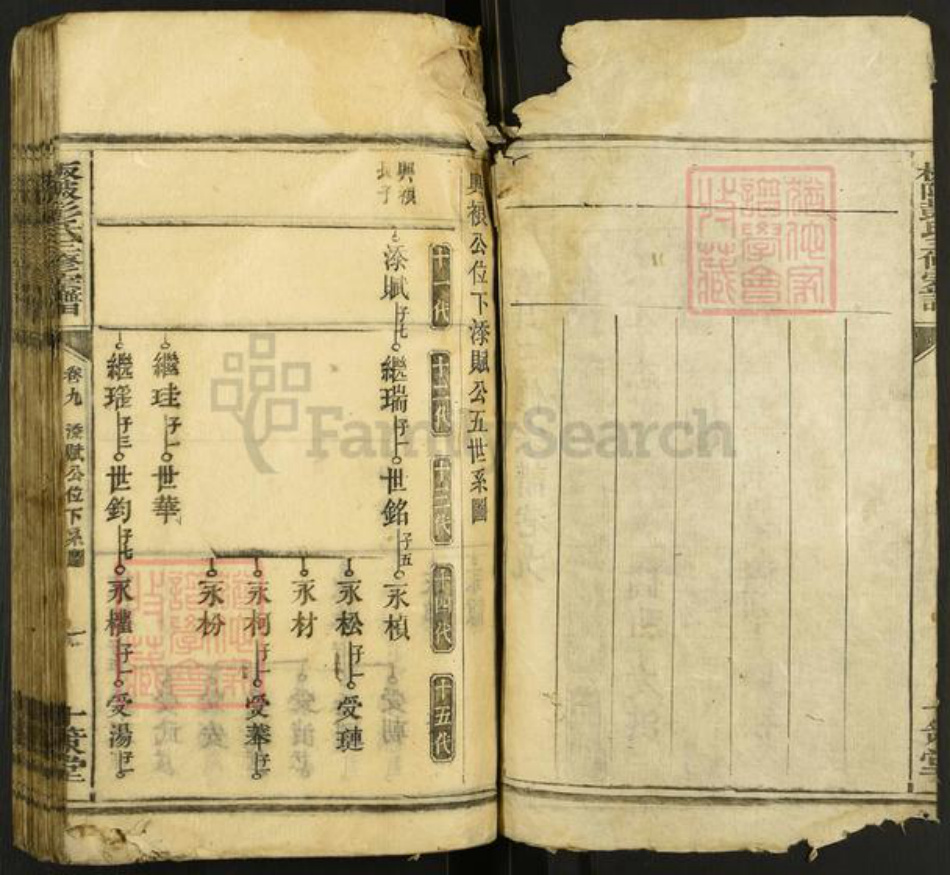 興禎公位下漆賦公五世系圖
十一代
十二代
十三代
十四代
十五代
興禎
長子
漆賦
子七
繼瑞
子一
世銘
子五
永楨
永松
子一
受璉
永材
永柯
子一
受葊
永枌
繼珪
子一
世華
繼瑤
子三
世鈞
子七
永權
子一
受湯
子一
彭氏三修宗譜
卷九
漆賦公位下系圖
一
FamilySearch